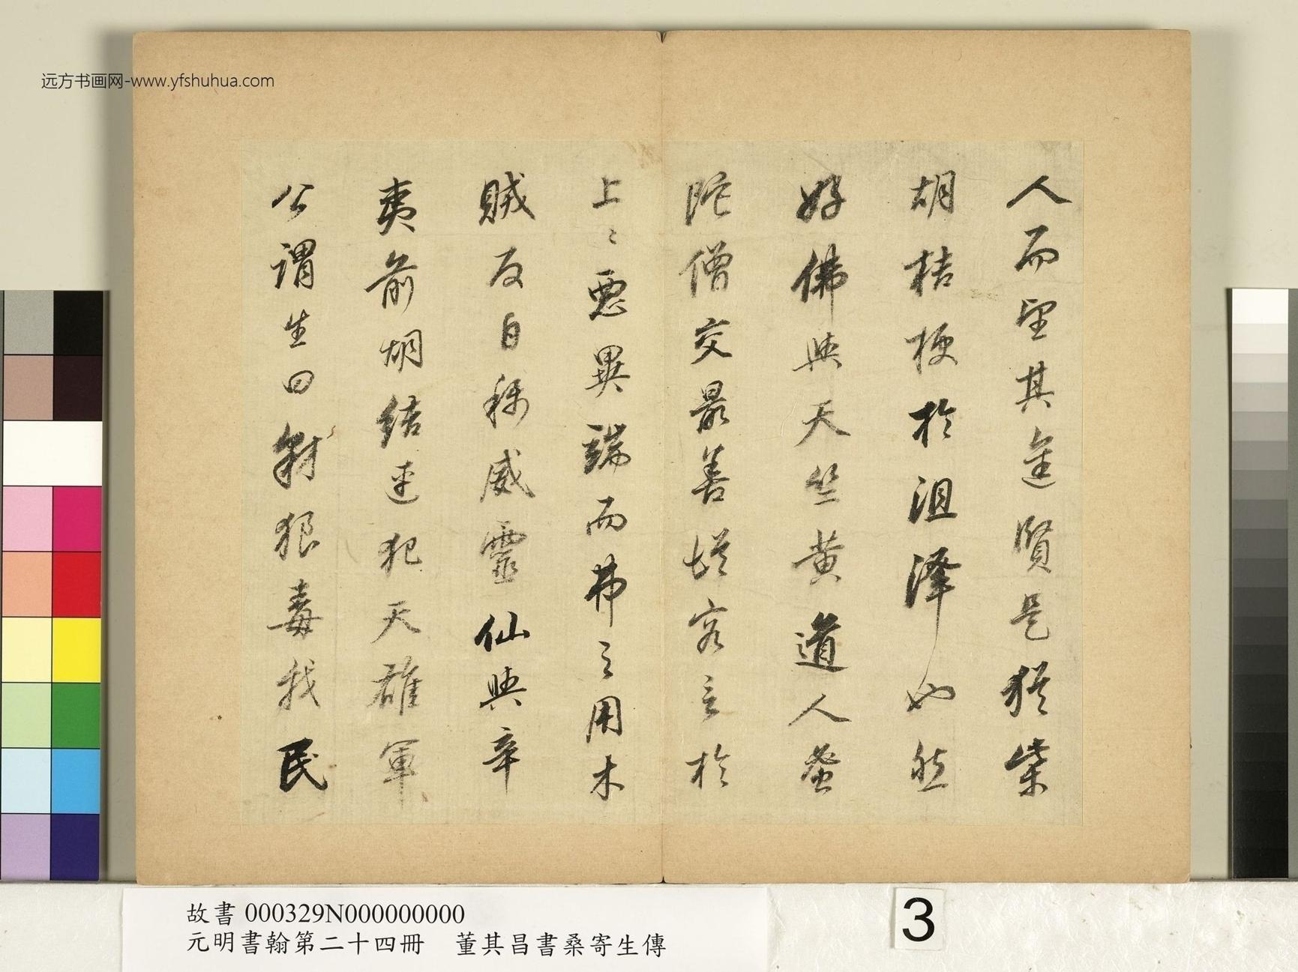 远方书画网-www.yfshuhua.com
人而望其進賢是猶柴
胡桔梗於沮澤也然
好佛與天竺黄道人蚕
陀僧交最善嘗容言於
上〻惡異端而弗之用木
賊反自称威靈仙與辛
夷前胡結連犯天雄軍
公謂生曰豺狼毒我民
故書 000329N000000000
元明書翰第二十四冊 董其昌書桑寄生傳
3